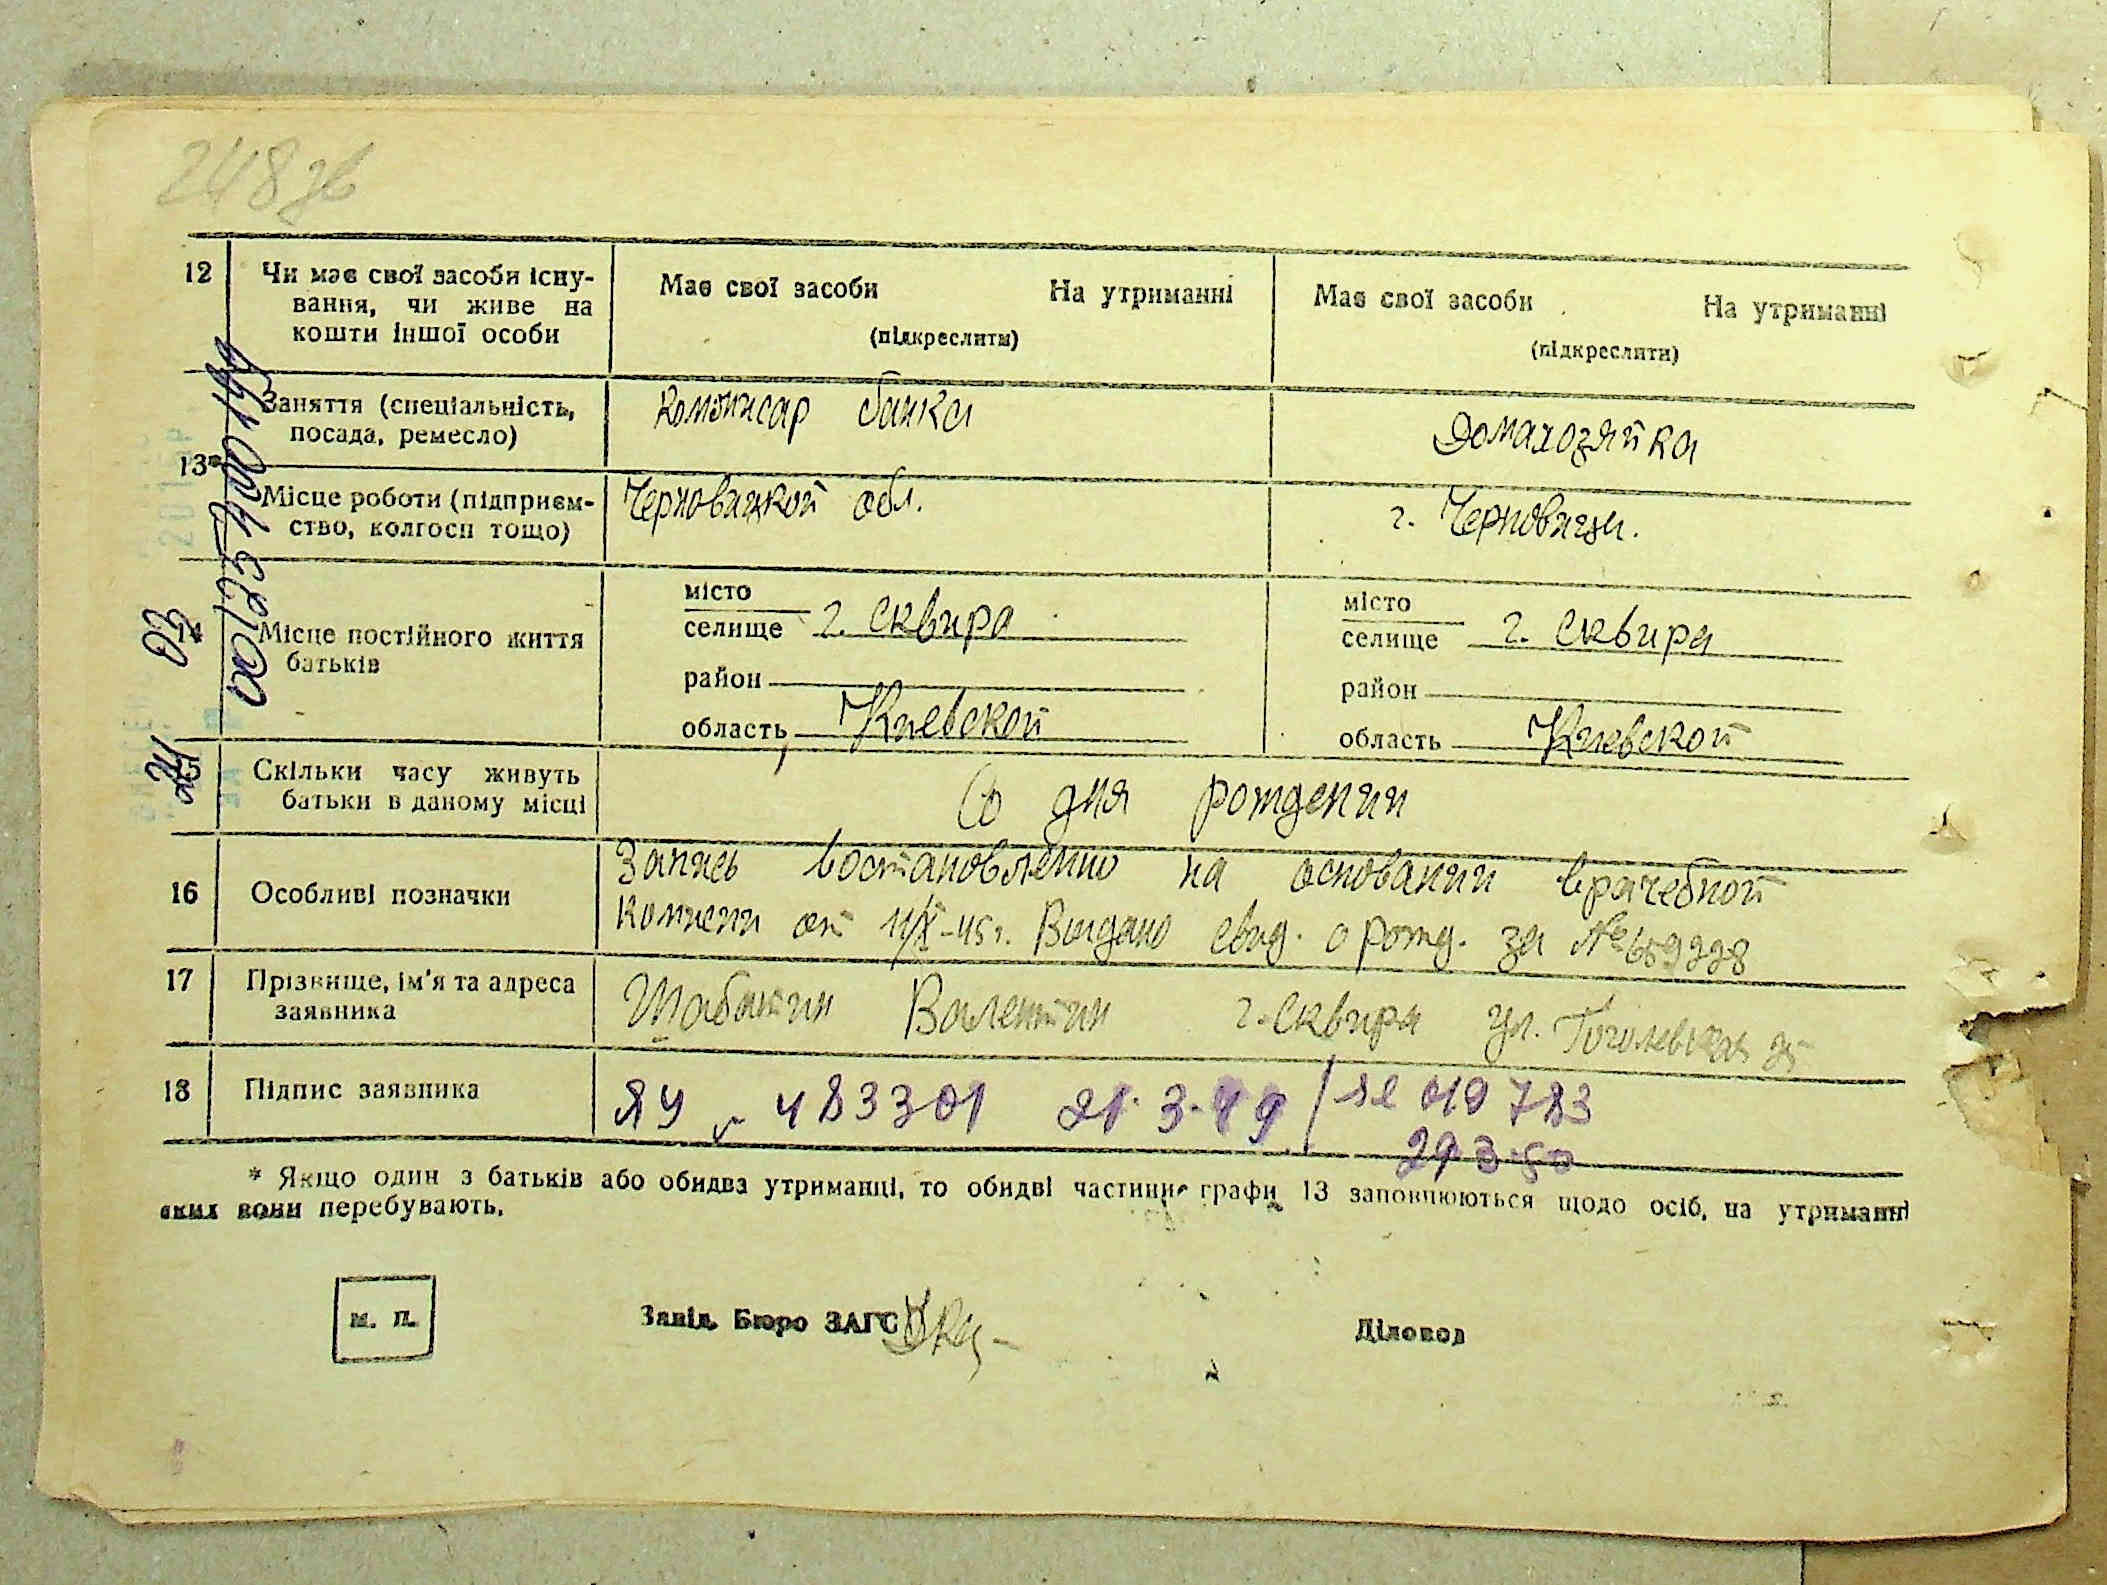 248 зв
12 Чи має свої засоби існу-
вання, чи живе на
кошти іншої особи
Має свої засоби На утриманні
(підкреслити)
Має свої засоби На утриманні
(підкреслити)
13*
Заняття (спеціальність,
посада, ремесло)
комисар банка
Домахозяйка
Місце роботи (підприєм-
ство, колгосп тощо)
Черновицкой обл.
г. Черновицы.
14 Місце постійного життя
батьків
місто
селище г. Сквира
район
область Киевской
місто
селище г. Сквира
район
область Киевской
Скільки часу живуть
батьки в даному місці
Со дня рождении
16 Особливі позначки
Запись востановленно на основании врачебной
комисии от 11/X-45 г. Выдано свид. о рожд. за № 659228
17 Прізвище, ім'я та адреса
заявника
Шабатин Валентин г. Сквира ул. Гоголевская 25
18 Підпис заявника
ЯУ 483301 21.3.49 / 019783
29 3 50
* Якщо один з батьків або обидва утриманці, то обидві частини графи 13 заповнюються щодо осіб, на утриманні
яких вони перебувають.
м. п.
Завід. Бюро ЗАГС
Діловод